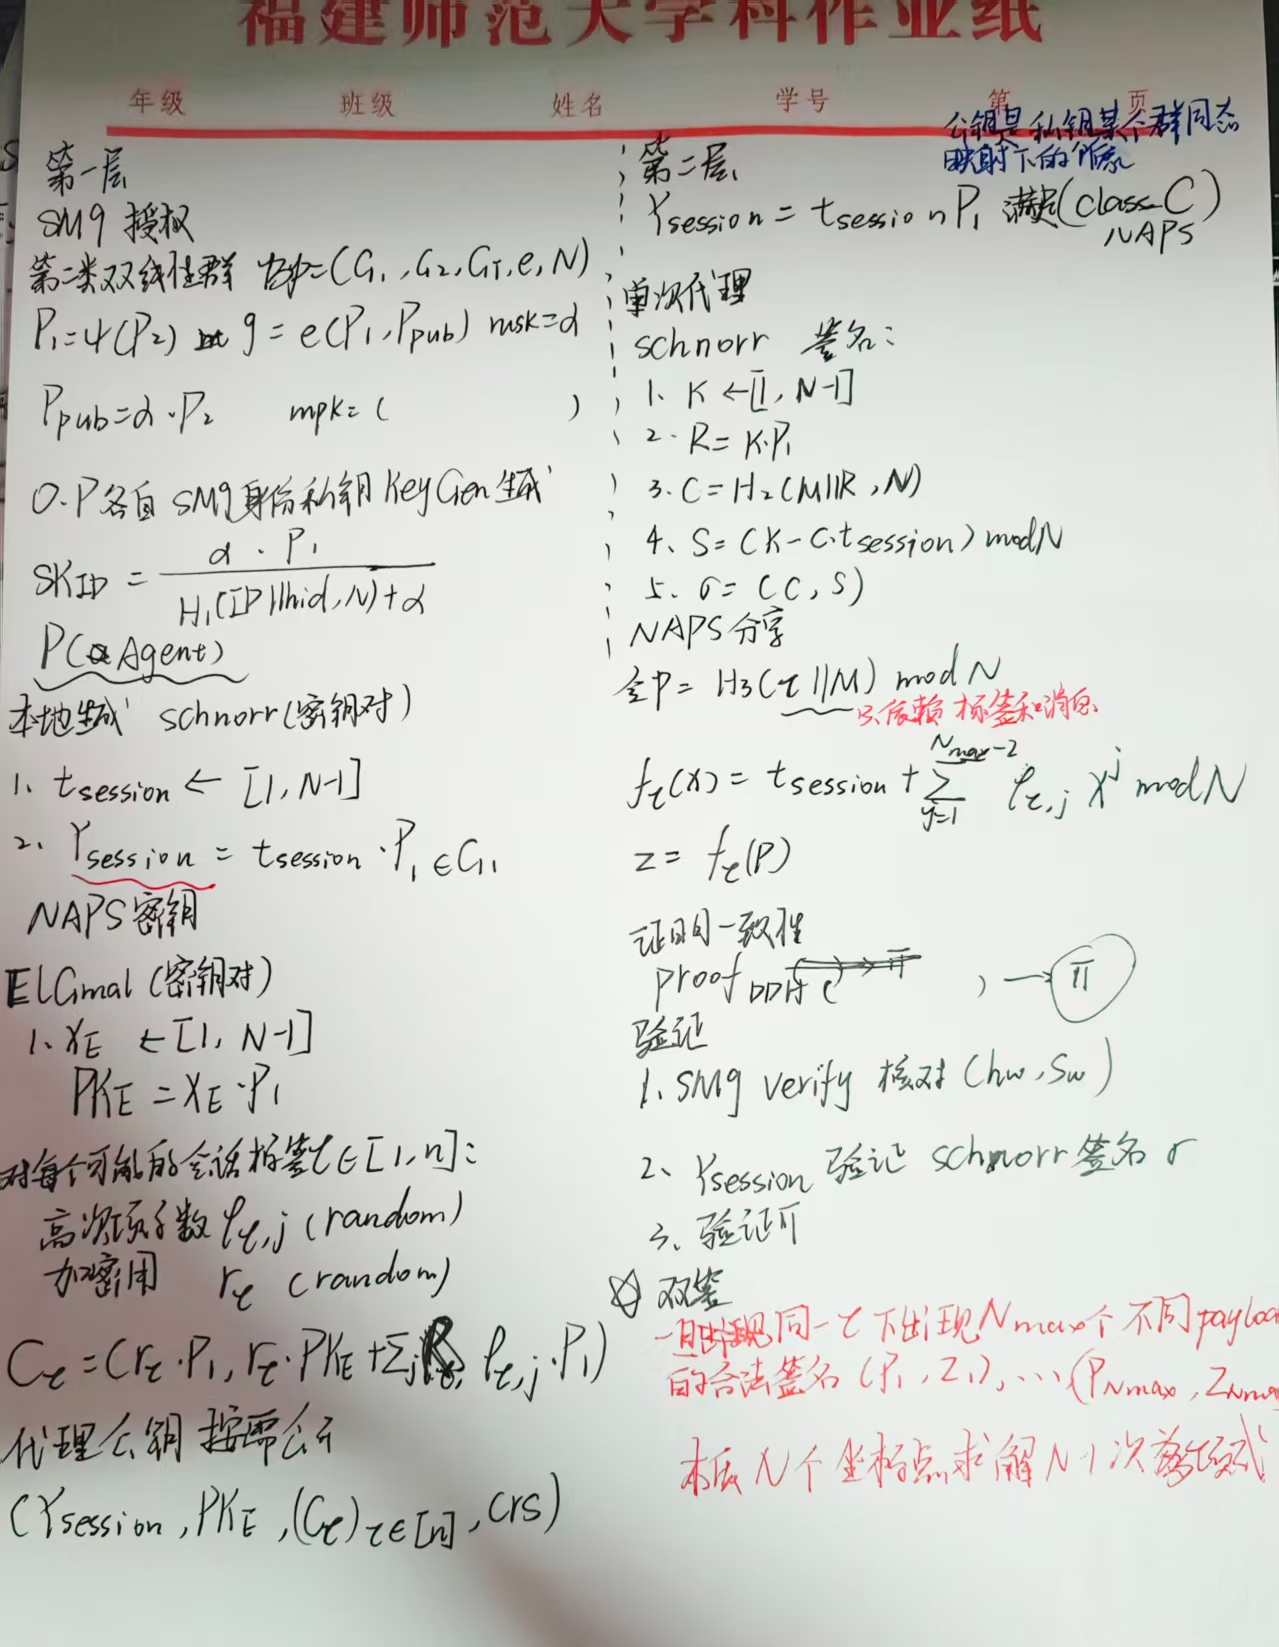 福建师范大学科作业纸
年级 班级 姓名 学号 第 页
第一层
SM9 授权
第二类双线性群 =(G₁,G₂,G_T,e,N)
P₁=ψ(P₂) g=e(P₁,P_pub) msk=α
P_pub=α·P₂ mpk=( )
O.P各自SM9身份私钥KeyGen生成
SK_ID = α·P₁ / H₁(ID||hid,N)+α
P(Agent)
本地生成 schnorr(密钥对)
1、t_session ← [1,N-1]
2、Y_session = t_session·P₁∈G₁
NAPS密钥
ELGmal(密钥对)
1、x_E ← [1,N-1]
PK_E = x_E·P₁
对每个可能的会话标签τ∈[1,n]:
高次项系数 ρ_τ,j (random)
加密用 r_τ (random)
C_τ=(r_τ·P₁, r_τ·PK_E+Σ_j ρ_τ,j·P₁)
代理公钥 按需公开
(Y_session, PK_E, (C_τ)_τ∈[n], crs)
公钥是私钥某个群同态
映射下的像
第二层
Y_session = t_session P₁ 满足(class C)
NAPS
单次代理
schnorr 签名:
1、K ←[1,N-1]
2. R=K·P₁
3. C=H₂(M||R,N)
4、S=(K-C·t_session) mod N
5、σ=(C,S)
NAPS分享
令P=H₃(τ||M) mod N
只依赖 标签和消息
f_τ(x)=t_session+Σ_{j=1}^{N_max-2} ρ_τ,j x^j mod N
z=f_τ(P)
证明一致性
proof_DDH( ) → π
验证
1、SM9 verify 核对(hw,Sw)
2、Y_session 验证 schnorr签名σ
3、验证π
☆ 双签
一旦出现同一τ下出现N_max个不同payloa
的合法签名(P₁,Z₁),…(P_Nmax,Z_Nma
本质N个坐标点求解N-1次多项式